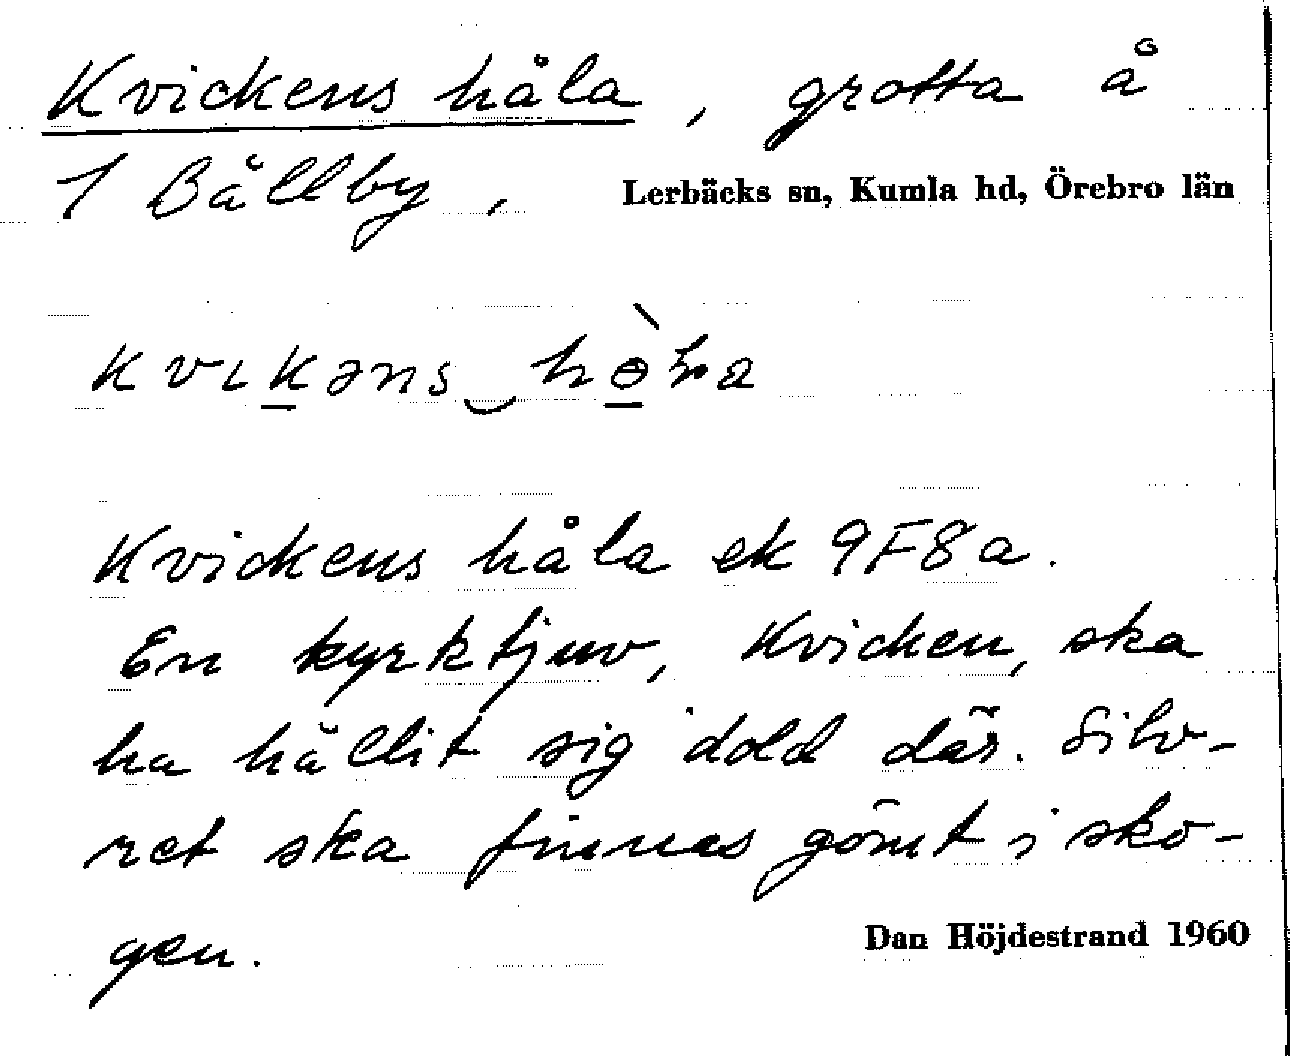 Kvickens håla, grotta å
1 Bållby, Lerbäcks sn, Kumla hd, Örebro län
Kvickens håla ek 9F8a.
En kyrktjuv, Kvicken, ska
ha hållit sig dold där. Silv-
ret ska finnas gömt i sko-
gen.
Dan Höjdestrand 1960